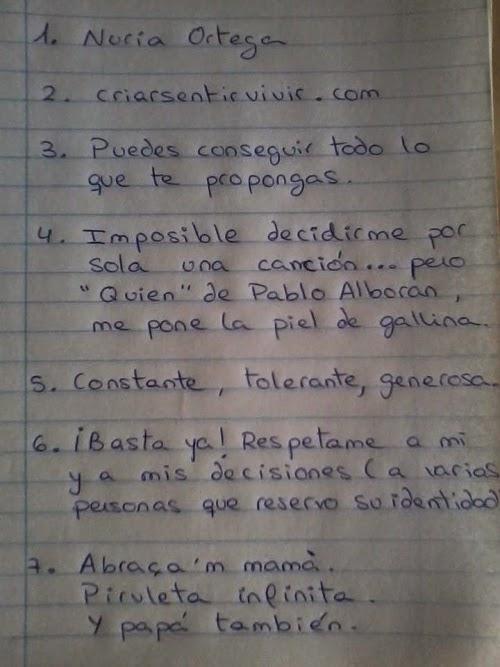 1. Nuria Ortega
2. criarsentirvivir.com
3. Puedes conseguir todo lo
que te propongas.
4. Imposible decidirme por
sola una canción... pero
"Quien" de Pablo Alboran,
me pone la piel de gallina.
5. Constante, tolerante, generosa.
6. ¡Basta ya! Respetame a mi
y a mis decisiones (a varias
personas que reservo su identidad
7. Abraça'm mamà.
Piruleta infinita.
Y papá también.